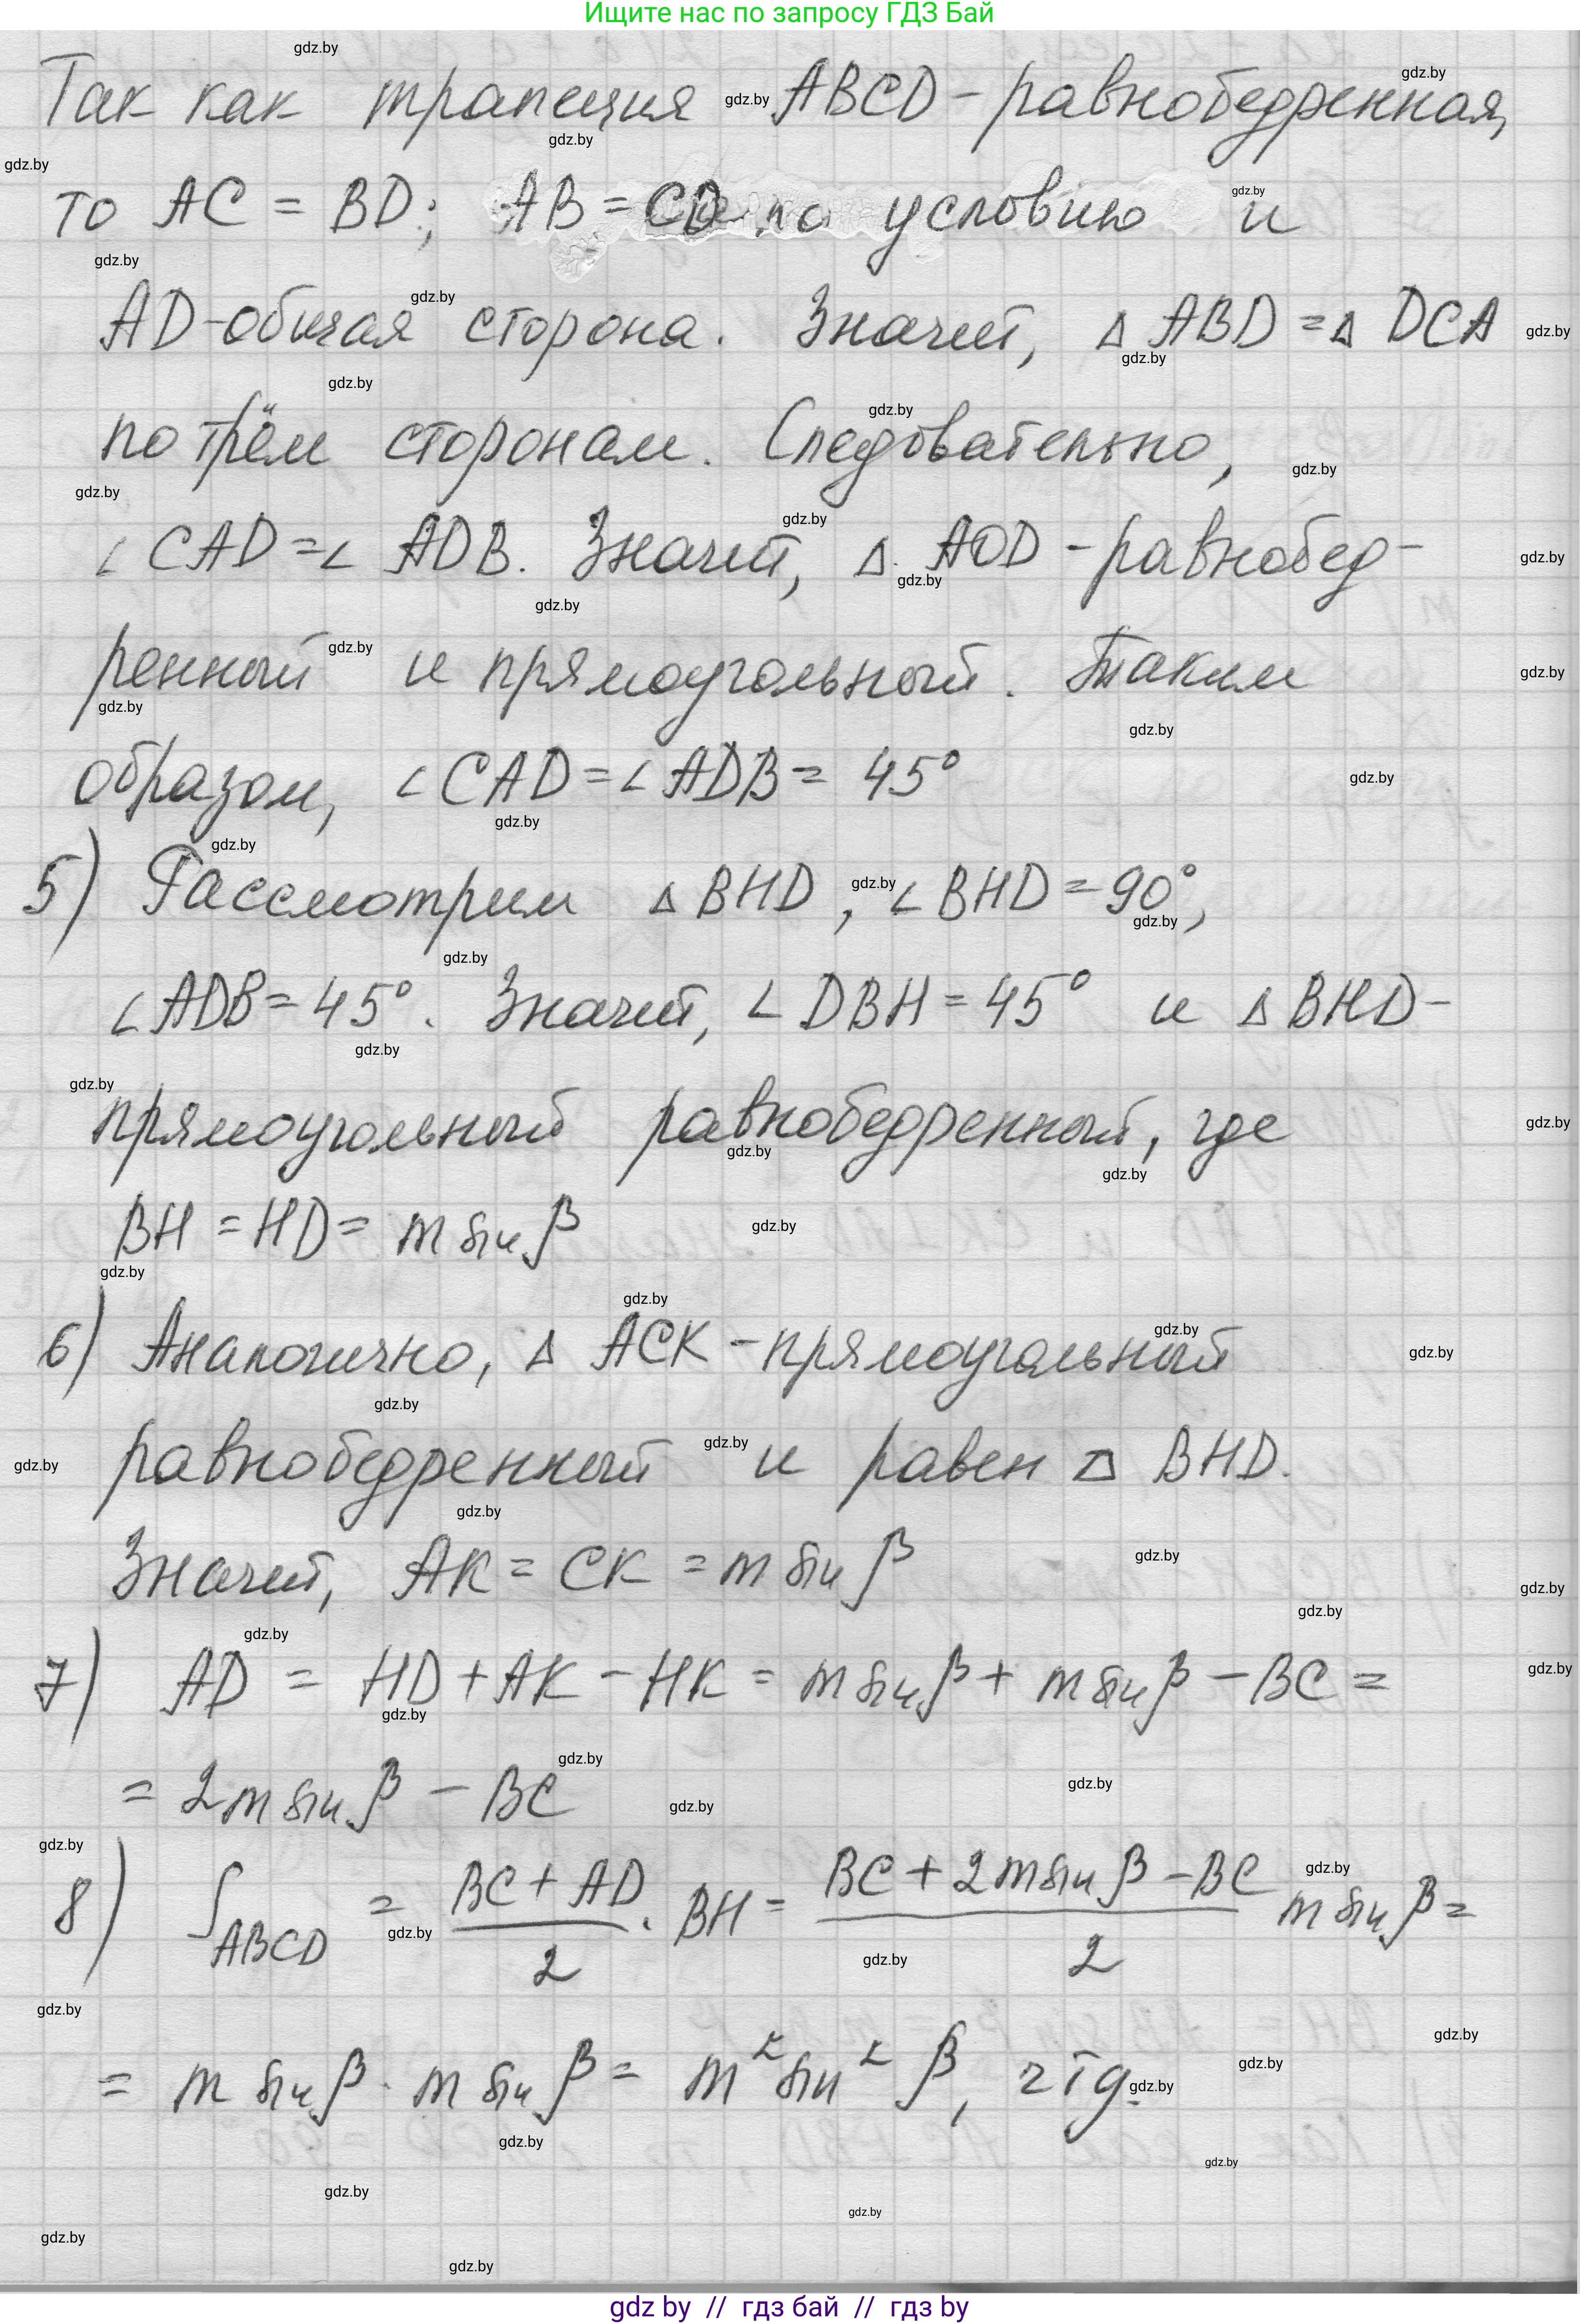 Ищите нас по запросу ГДЗ Бай
Так как трапеция ABCD - равнобедренная,
то AC = BD; AB = CD по условию и
AD - общая сторона. Значит, △ ABD = △ DCA
по трём сторонам. Следовательно,
∠ CAD = ∠ ADB. Значит, △ AOD - равнобед-
ренный и прямоугольный. Таким
образом, ∠ CAD = ∠ ADB = 45°
5) Рассмотрим △ BHD, ∠ BHD = 90°,
∠ ADB = 45°. Значит, ∠ DBH = 45° и △ BHD -
прямоугольный равнобедренный, где
BH = HD = m sin β
6) Аналогично, △ ACK - прямоугольный
равнобедренный и равен △ BHD.
Значит, AK = CK = m sin β
7) AD = HD + AK - HK = m sin β + m sin β - BC =
= 2m sin β - BC
8) S_ABCD = (BC + AD)/2 · BH = (BC + 2m sin β - BC)/2 m sin β =
= m sin β · m sin β = m² sin² β, чтд.
gdz by // гдз бай // гдз by